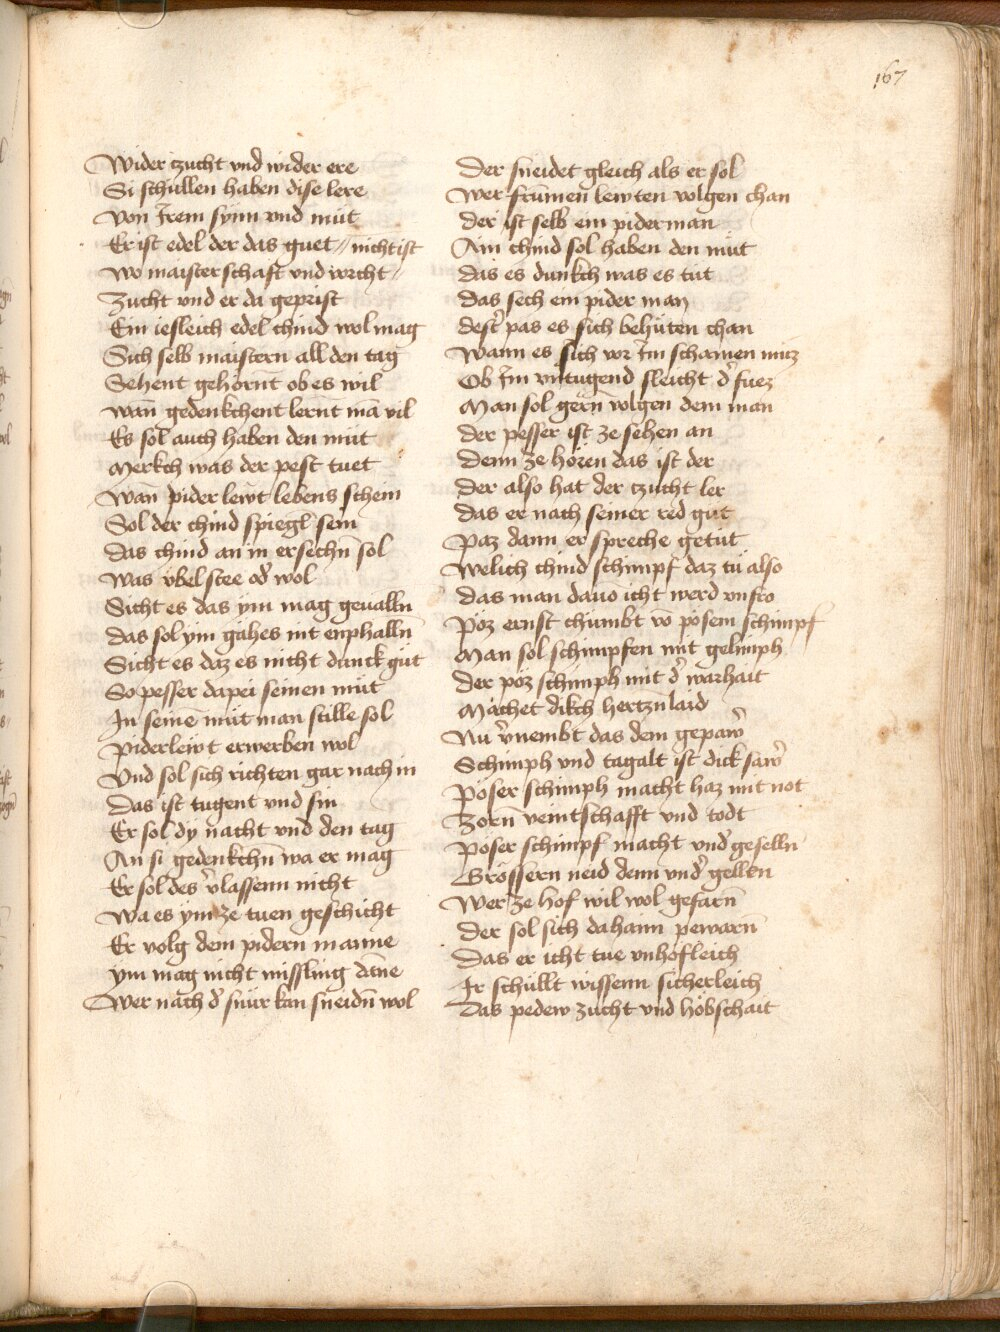 167
Wider zucht vnd wider ere
Si schullen haben dise lere
Von Jrem synn vnd mut
Er ist edel der das guet // nicht ist
Wo maisterschaft vnd vorcht //
Zucht vnd er da geprist
Ein iesleich edel chind wol mag
Sich selb maistern all den tag
Sehent gehornt ob es wil
wan̄ gedenkchent lernt mā vil
Es sol auch haben den mut
Merkch was der pest tuet
Wan̄ pider lewt lebens schein
Sol der chind spiegl sein
Das chind an in ersechn̄ sol
Was vbel stee od̛ wol
Sicht es das ym mag geualln̄
das sol ym gahes nit enphalln̄
Sicht es daz es nicht dunck gut
So pesser dapei seinen mut
In seinē mut man stille sol
Piderlewt erwerben wol
Vnd sol sich richten gar nach in
Das ist tugent vnd sin
Er sol dy nacht vnd den tag
An si gedenkchn̄ wa er mag
Er sol des v̛lassenn nicht
Wa es ym ze tuen geschicht
Er volg dem pidern manne
ym mag nicht missling dēne
Wer nach d̛ snur kan sneidn̄ wol
Der sneidet gleich als er sol
Wer frumen lewten volgen chan
der ist selb ein piderman
Ain chind sol haben den mut
das es dunkch was es tut
das sech ein pider man
dest̛ pas es sich behuten chan
Wann es sich vor Jm schamen muz
Ob Jm vntugend sleicht d̛ fuez
Man sol gern̄ volgen dem man
der pesser ist ze sehen an
Denn ze horen das ist der
Der also hat der tzucht ler
das er nach seiner red gut
Paz dann er spreche getut
Welich chind schimpf daz tu also
das man dauō icht werd vnfro
Poz ernst chumbt vō posem schimpf
Man sol schimpfen mit gelimph
der poz schimph mit d̛ warhait
Machet dikch hertzn̄ laid
Nu v̛nembt das dem gepaw̛
Schimph vnd tagalt ist dick saw̛
Poser schimph macht haz mit not
Zorn̄ veintschafft vnd todt
Poser schimpf macht vnd̛ geselln̄
Grossern neid denn vnd̛ gellen
Wer ze hof wil wol gefarn̄
Der sol sich dahaim pewarn̄
Das er icht tue vnhofleich
Ir schullt wissenn sicherleich
Das pedew zucht vnd hobschait